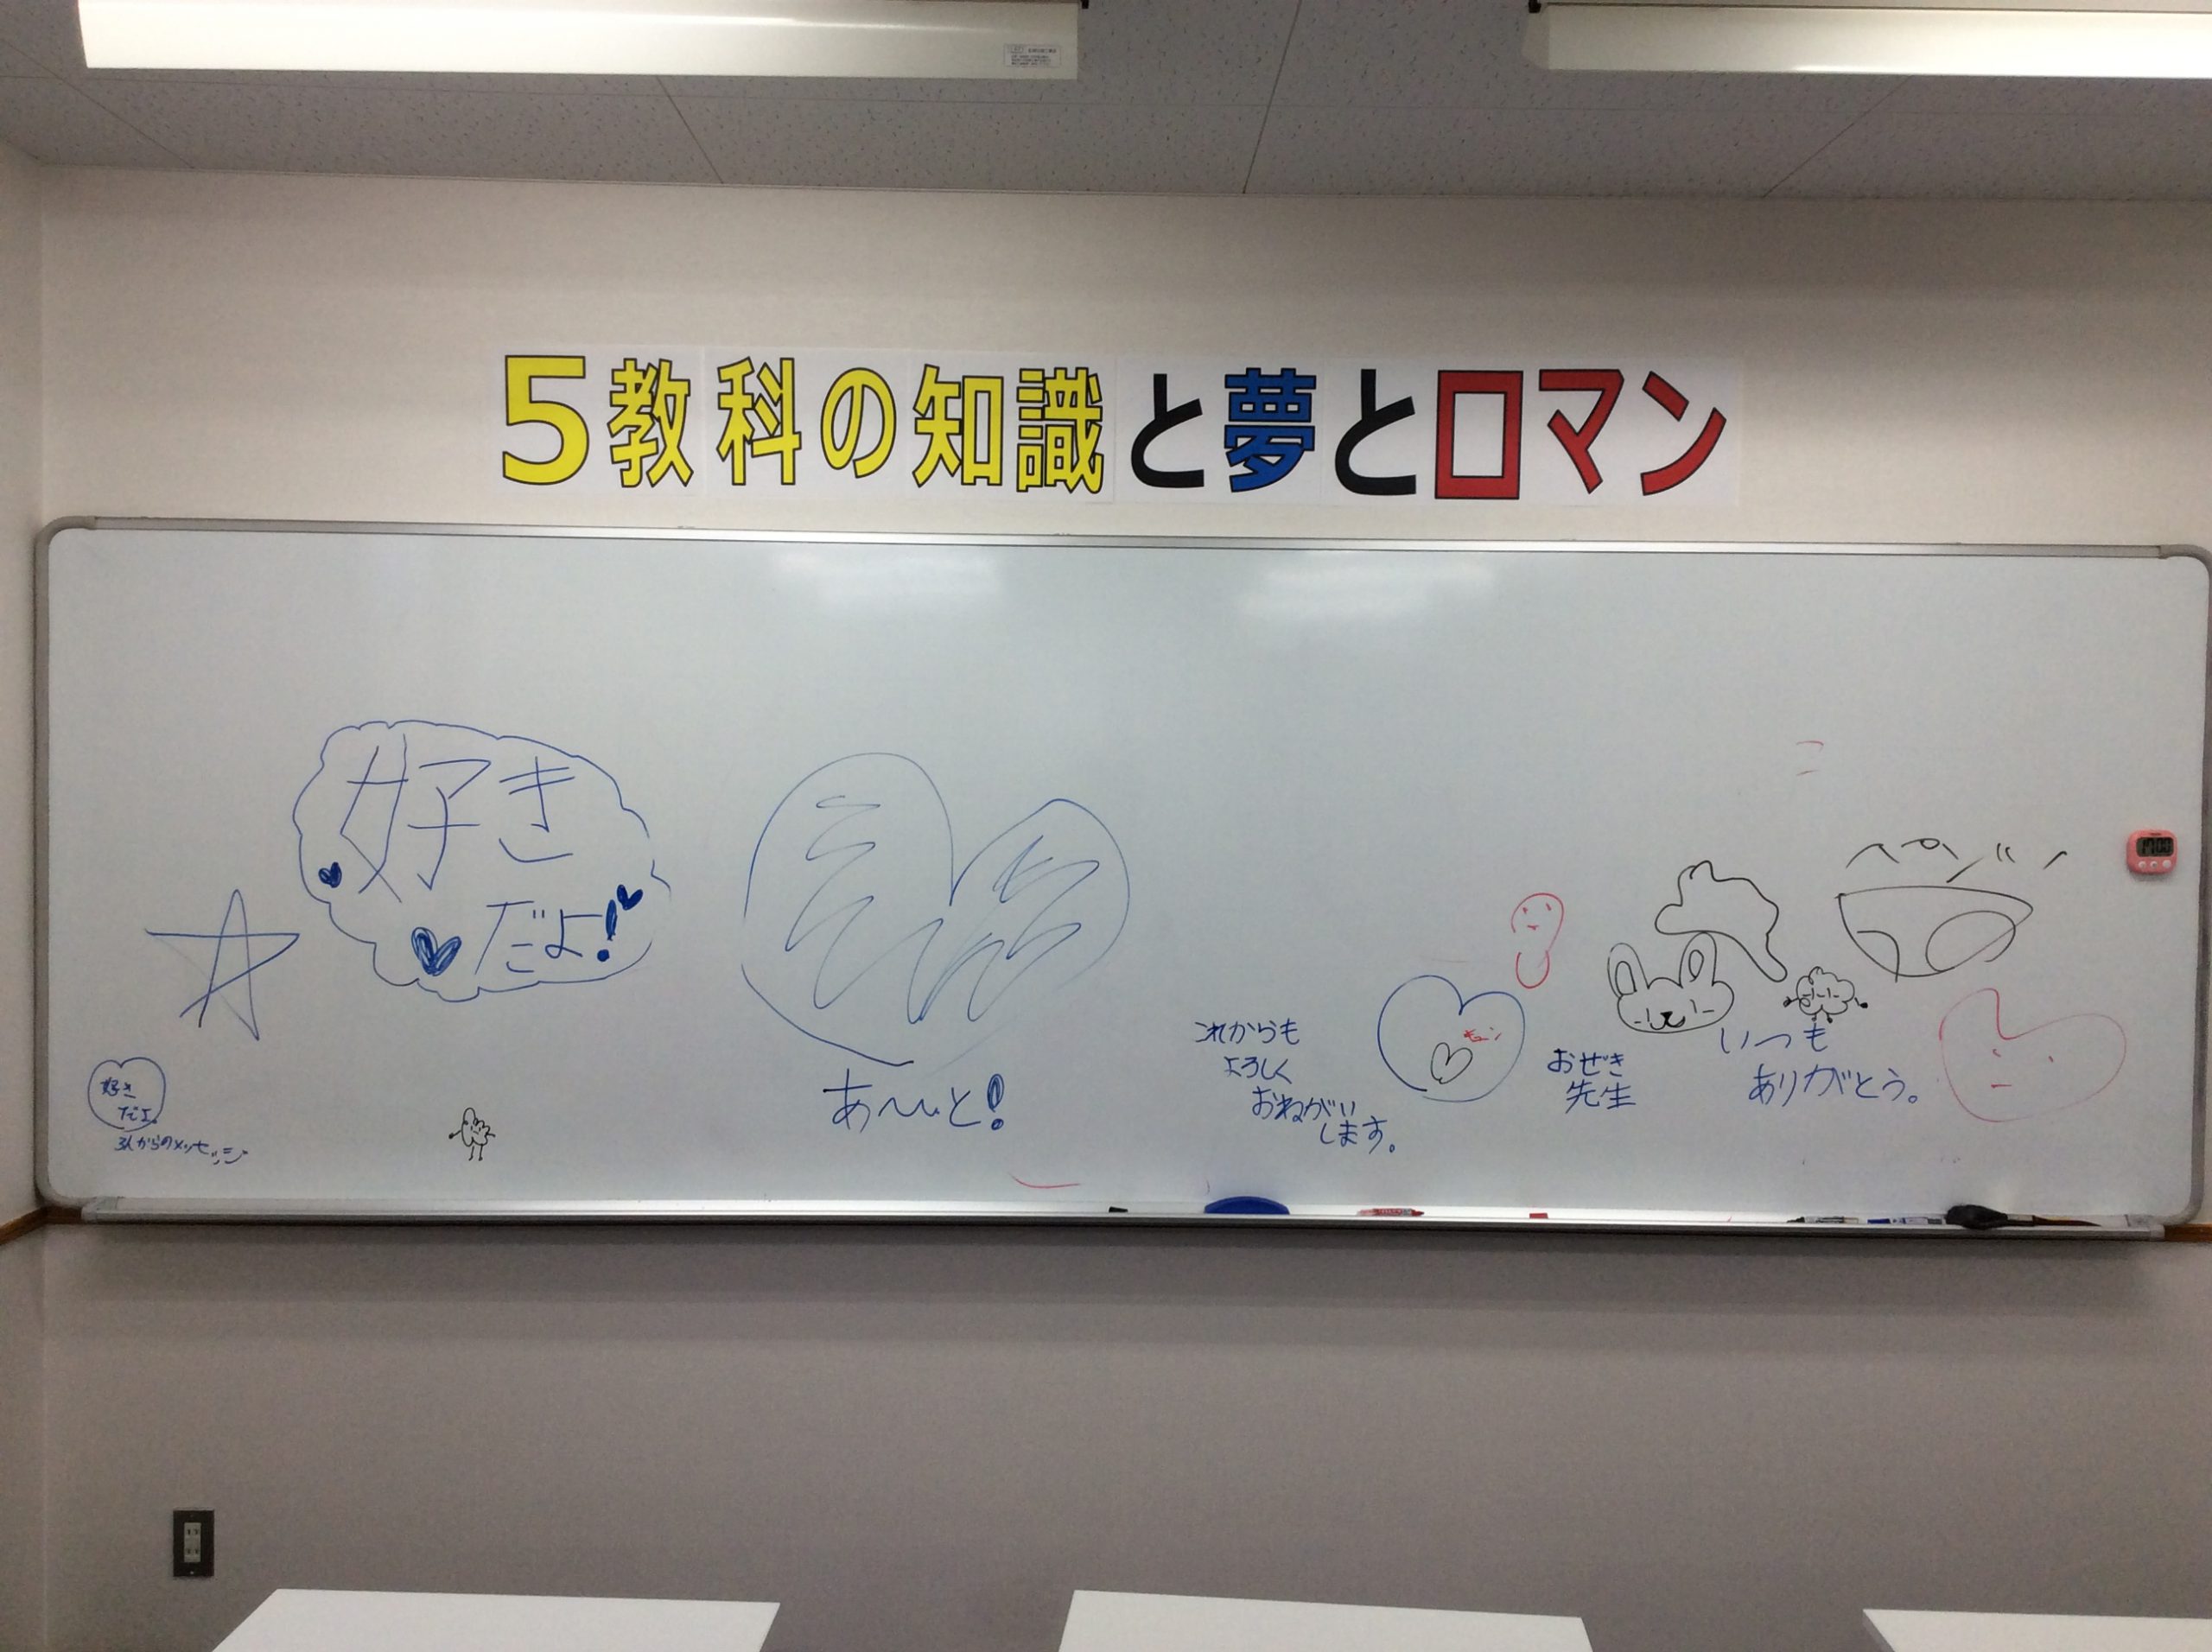 5教科の知識と夢とロマン
好き
だよ!
あ〜〜と!
これからも
よろしく
おねがい
します。
キュン
おぜき
先生
いつも
ありがとう。
好き
だよ。
3人からのメッセージ